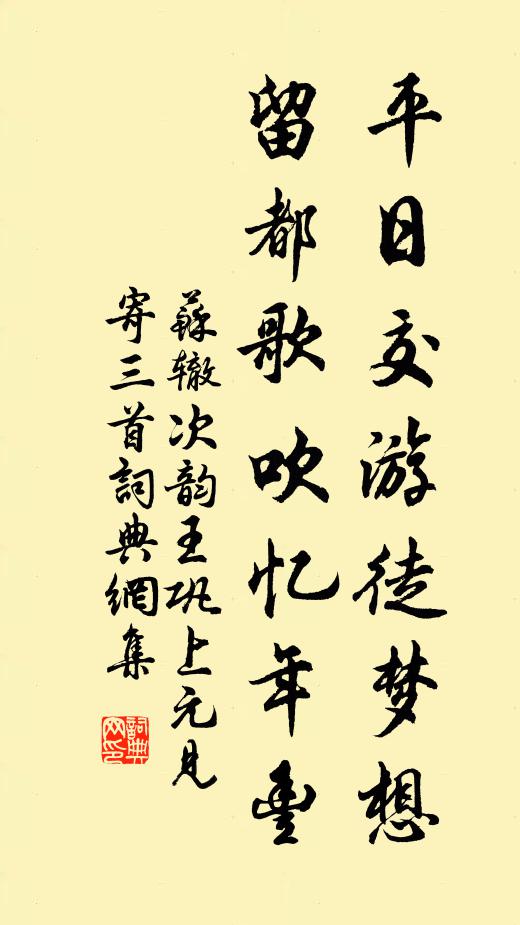 平日交游徒梦想
留都歌吹忆年豊
蘇辙次韵王巩上元見
寄三首詞典網集
詞典
网印